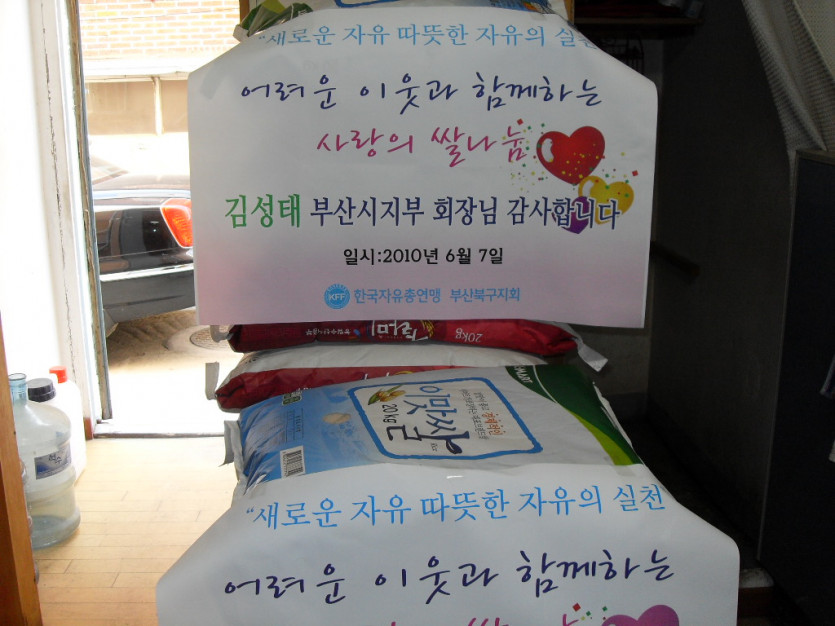 “새로운 자유 따뜻한 자유의 실천
어려운 이웃과 함께하는
사랑의 쌀나눔
김성태 부산시지부 회장님 감사합니다
일시:2010년 6월 7일
KFF 한국자유총연맹 부산북구지회
20kg
이맛쌀
20kg
“새로운 자유 따뜻한 자유의 실천
어려운 이웃과 함께하는